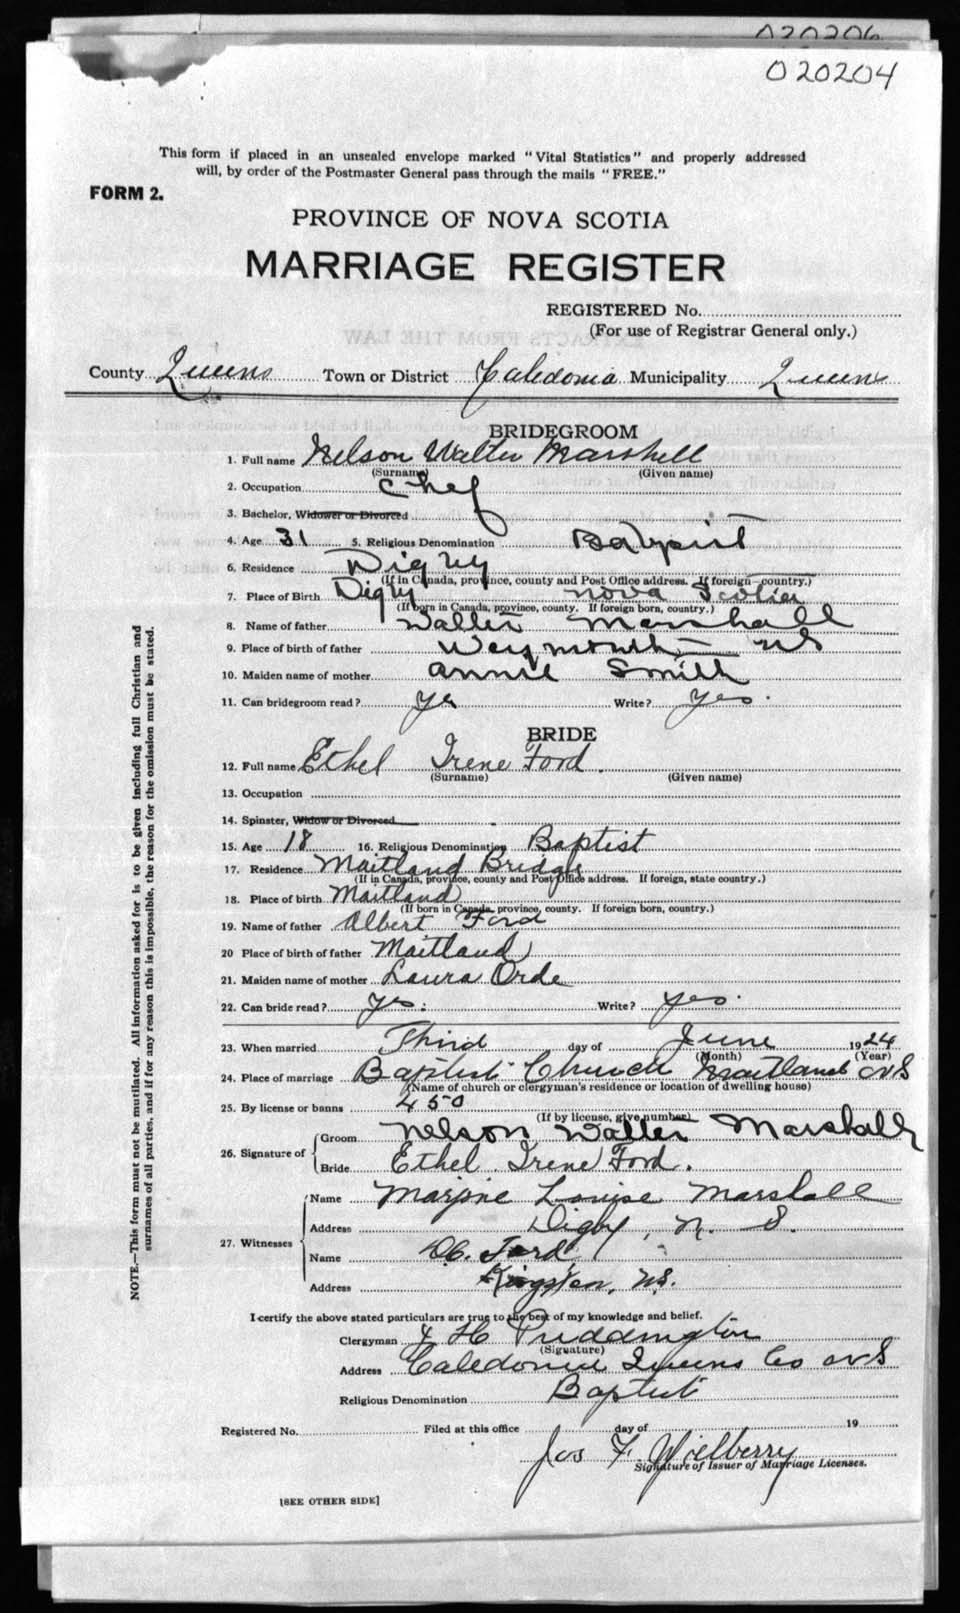 020206
020204
This form if placed in an unsealed envelope marked "Vital Statistics" and properly addressed
will, by order of the Postmaster General pass through the mails "FREE."
FORM 2.
PROVINCE OF NOVA SCOTIA
MARRIAGE REGISTER
REGISTERED No.
(For use of Registrar General only.)
EXTRACTS FROM THE LAW
County Queens Town or District Caledonia Municipality Queens
BRIDEGROOM
1. Full name Nelson Walter Marshall
(Surname) (Given name)
2. Occupation chef
3. Bachelor, Widower or Divorced
4. Age 31 5. Religious Denomination Babpist
6. Residence Digby
(If in Canada, province, county and Post Office address. If foreign country.)
7. Place of Birth Digby Nova Scotia
(If born in Canada, province, county. If foreign born, country.)
8. Name of father Walter Marshall
9. Place of birth of father Weymouth NS
10. Maiden name of mother annie Smith
11. Can bridegroom read? yes Write? Yes.
BRIDE
12. Full name Ethel Irene Ford.
(Surname) (Given name)
13. Occupation
14. Spinster, Widow or Divorced
15. Age 18 16. Religious Denomination Baptist
17. Residence Maitland Bridge
(If in Canada, province, county and Post Office address. If foreign, state country.)
18. Place of birth Maitland
(If born in Canada, province, county. If foreign born, country.)
19. Name of father Albert Ford
20 Place of birth of father Maitland
21. Maiden name of mother Laura Orde
22. Can bride read? yes. Write? yes.
23. When married Third day of June 1924
(Month) (Year)
24. Place of marriage Baptist Church Maitland NS
(Name of church or clergyman's residence or location of dwelling house)
25. By license or banns 450
(If by license, give number)
26. Signature of
Groom Nelson Walter Marshall
Bride Ethel Irene Ford.
27. Witnesses
Name Marjorie Louise Marshall
Address Digby, N. S.
Name Ford
Address Kingston, NS.
I certify the above stated particulars are true to the best of my knowledge and belief.
Clergyman H Puddington
(Signature)
Address Caledonia Queens Co NS
Religious Denomination Baptist
Registered No. Filed at this office day of 19
Jos F.
Signature of Issuer of Marriage Licenses.
[SEE OTHER SIDE]
NOTE.—This form must not be mutilated. All information asked for is to be given including full Christian and
surnames of all parties, and if for any reason this is impossible, the reason for the omission must be stated.